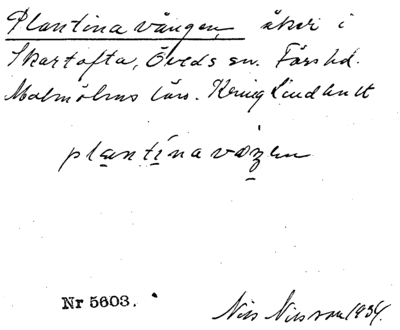 Plantinavången, åker i
Skartofta, Öveds sn. Färs hd.
Malmöhus län. Kring Lindhult
plantinavången
Nr 5603.
Nils Nilsson 1934.